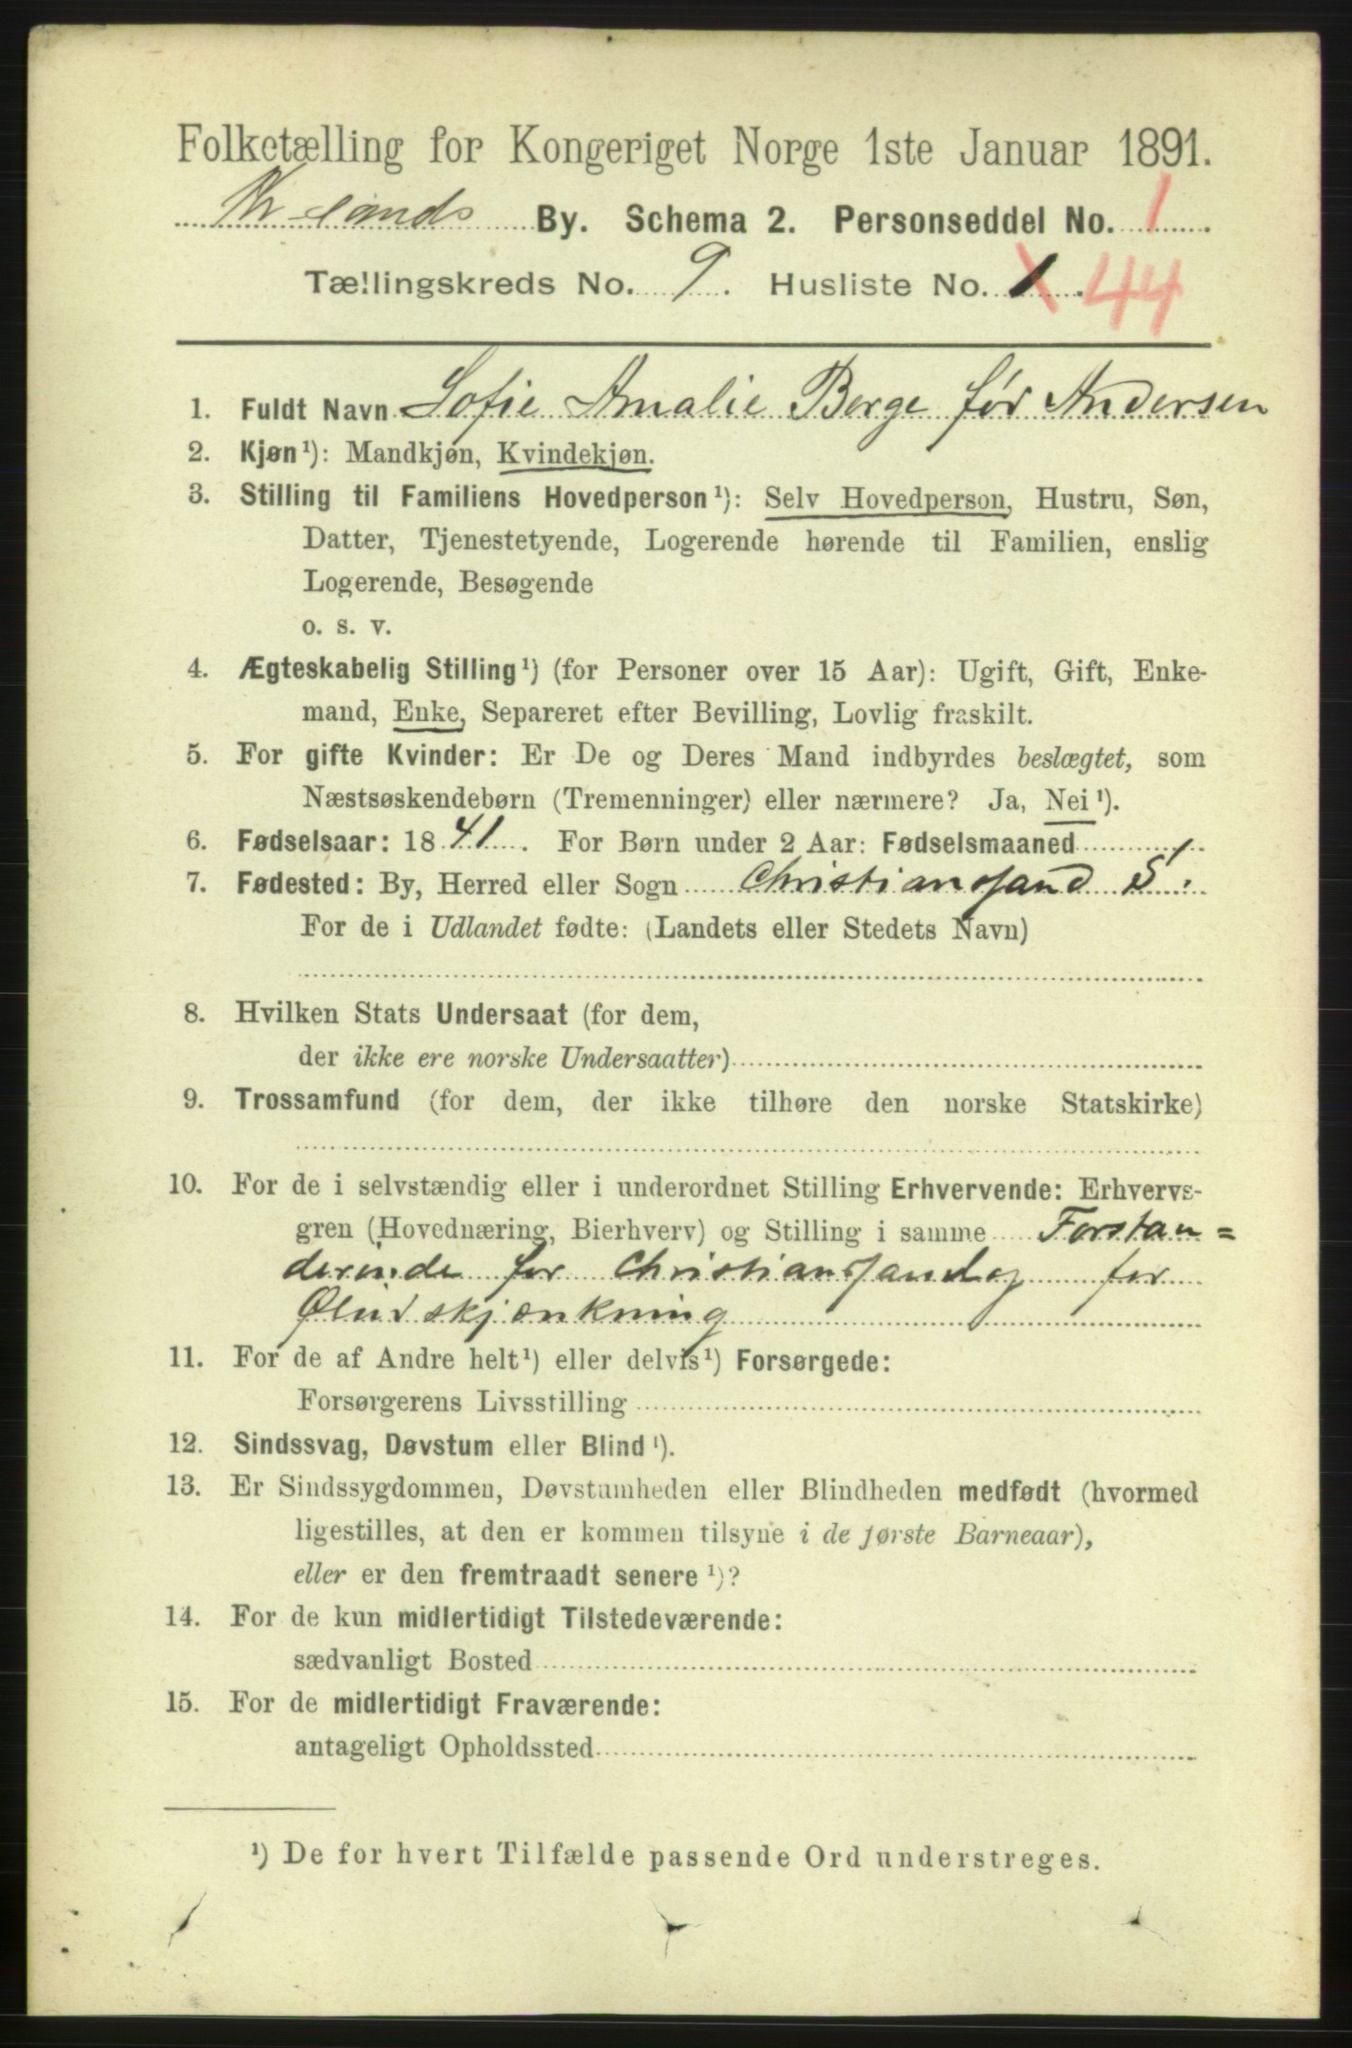 Folketælling for Kongeriget Norge 1ste Januar 1891.
Kr.sands By. Schema 2. Personseddel No. 1
Tællingskreds No. 9. Husliste No. 1. 44
1. Fuldt Navn Sofie Amalie Berge før Andersen
2. Kjøn¹): Mandkjøn, Kvindekjøn.
3. Stilling til Familiens Hovedperson¹): Selv Hovedperson, Hustru, Søn,
Datter, Tjenestetyende, Logerende hørende til Familien, enslig
Logerende, Besøgende
o. s. v.
4. Ægteskabelig Stilling¹) (for Personer over 15 Aar): Ugift, Gift, Enke-
mand, Enke, Separeret efter Bevilling, Lovlig fraskilt.
5. For gifte Kvinder: Er De og Deres Mand indbyrdes beslægtet, som
Næstsøskendebørn (Tremenninger) eller nærmere? Ja, Nei¹).
6. Fødselsaar: 1841. For Børn under 2 Aar: Fødselsmaaned
7. Fødested: By, Herred eller Sogn Christiansand S.
For de i Udlandet fødte: (Landets eller Stedets Navn)
8. Hvilken Stats Undersaat (for dem,
der ikke ere norske Undersaatter)
9. Trossamfund (for dem, der ikke tilhøre den norske Statskirke)
10. For de i selvstændig eller i underordnet Stilling Erhvervende: Erhvervs-
gren (Hovednæring, Bierhverv) og Stilling i samme Forstan=
derinde for Christiansands for
Øludskjænkning
11. For de af Andre helt¹) eller delvis¹) Forsørgede:
Forsørgerens Livsstilling
12. Sindssvag, Døvstum eller Blind¹).
13. Er Sindssygdommen, Døvstumheden eller Blindheden medfødt (hvormed
ligestilles, at den er kommen tilsyne i de første Barneaar),
eller er den fremtraadt senere¹)?
14. For de kun midlertidigt Tilstedeværende:
sædvanligt Bosted
15. For de midlertidigt Fraværende:
antageligt Opholdssted
¹) De for hvert Tilfælde passende Ord understreges.